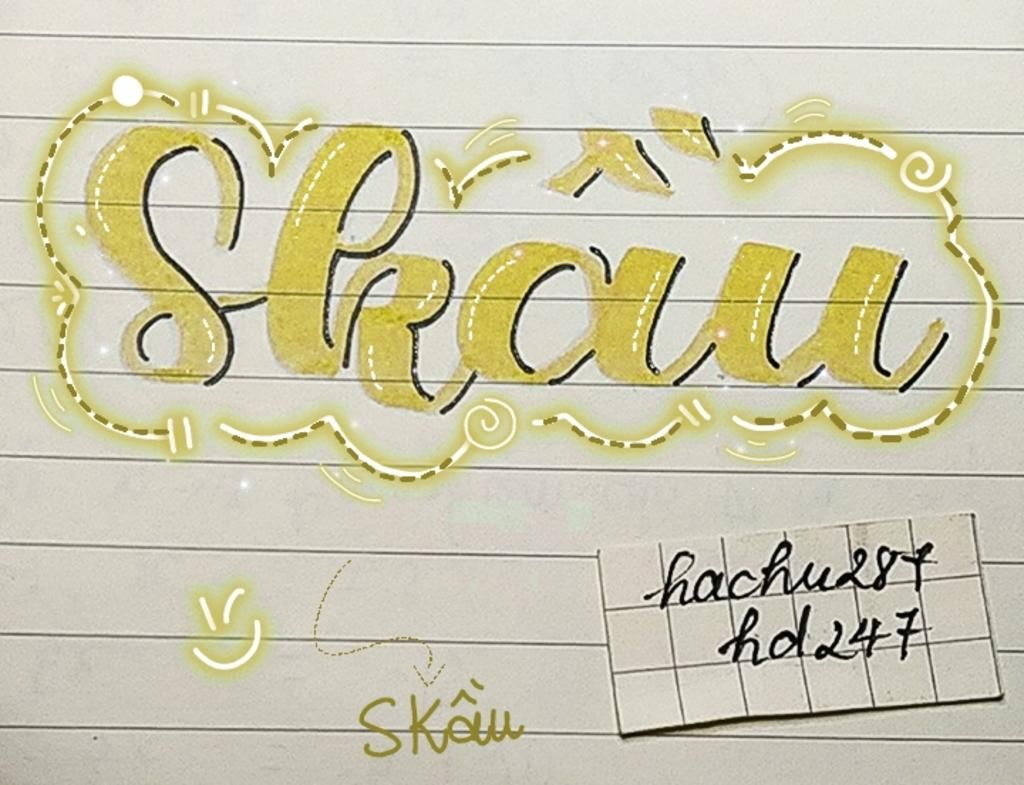 Skầu
hachu287
hd247
SKầu